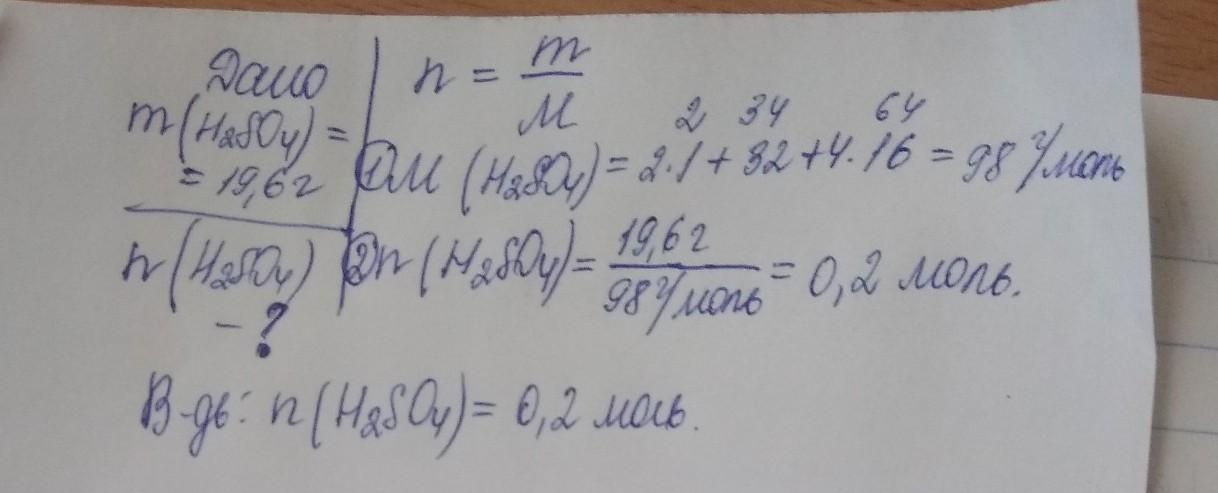 Дано
m(H₂SO₄) =
= 19,6г
n(H₂SO₄)
- ?
n = m/M
2 34 64
① M (H₂SO₄) = 2·1 + 32 + 4·16 = 98 г/моль
② n (H₂SO₄) = 19,6г / 98 г/моль = 0,2 моль.
В-дь: n(H₂SO₄) = 0,2 моль.